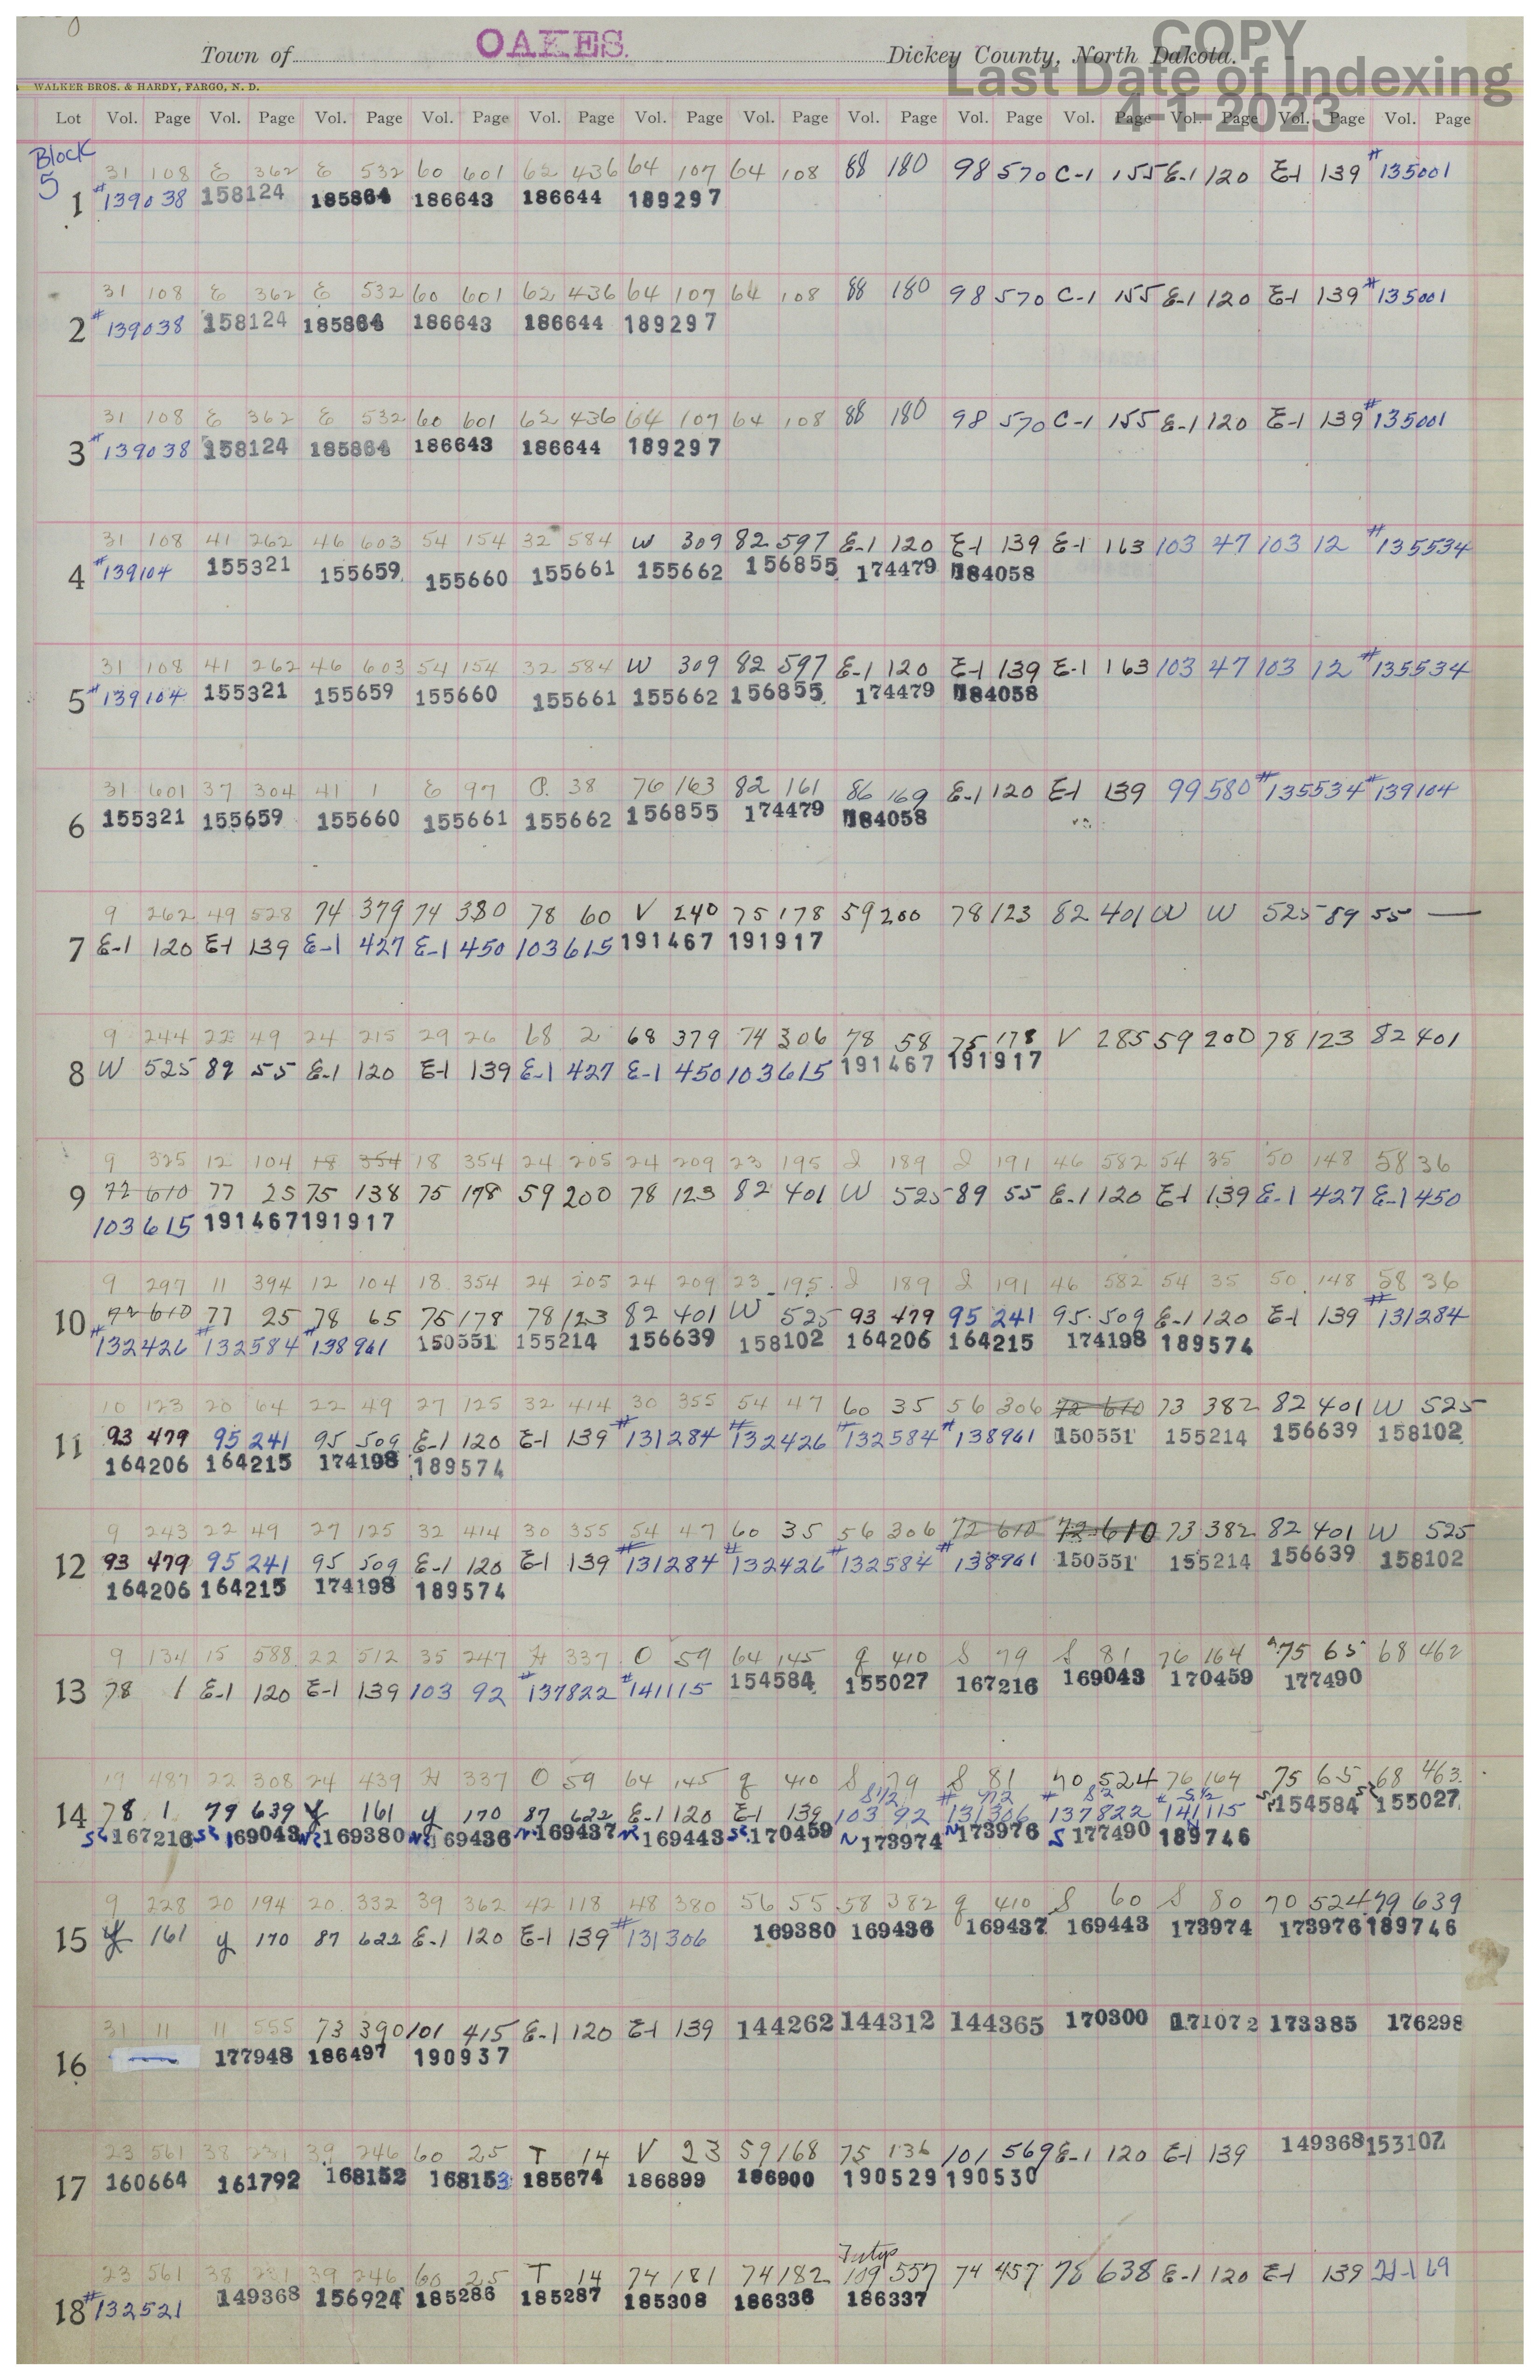 Town of OAKES. Dickey County, North Dakota.
COPY
Last Date of Indexing
4-1-2023
WALKER BROS. & HARDY, FARGO, N. D.
Lot Vol. Page Vol. Page Vol. Page Vol. Page Vol. Page Vol. Page Vol. Page Vol. Page Vol. Page Vol. Page Vol. Page Vol. Page Vol. Page
Block
5
31 108 E 362 E 532 60 601 62 436 64 107 64 108 88 180 98 570 C-1 155 E-1 120 E-1 139 #135001
1 #139038 158124 185864 186643 186644 189297
31 108 E 362 E 532 60 601 62 436 64 107 64 108 88 180 98 570 C-1 155 E-1 120 E-1 139 #135001
2 #139038 158124 185864 186643 186644 189297
31 108 E 362 E 532 60 601 62 436 64 107 64 108 88 180 98 570 C-1 155 E-1 120 E-1 139 #135001
3 #139038 158124 185864 186643 186644 189297
31 108 41 262 46 603 54 154 32 584 W 309 82 597 E-1 120 E-1 139 E-1 163 103 47 103 12 #135534
4 #139104 155321 155659 155660 155661 155662 156855 174479 184058
31 108 41 262 46 603 54 154 32 584 W 309 82 597 E-1 120 E-1 139 E-1 163 103 47 103 12 #135534
5 #139104 155321 155659 155660 155661 155662 156855 174479 184058
31 601 37 304 41 1 E 97 P. 38 76 163 82 161 86 169 E-1 120 E-1 139 99 580 #135534 #139104
6 155321 155659 155660 155661 155662 156855 174479 184058
9 262 49 528 74 379 74 380 78 60 V 240 75 178 59 200 78 123 82 401 W W 525 89 55 —
7 E-1 120 E-1 139 E-1 427 E-1 450 103 615 191467 191917
9 244 22 49 24 215 29 26 68 2 68 379 74 306 78 58 75 178 V 285 59 200 78 123 82 401
8 W 525 89 55 E-1 120 E-1 139 E-1 427 E-1 450 103 615 191467 191917
9 325 12 104 18 354 18 354 24 205 24 209 23 195 J 189 J 191 46 582 54 35 50 148 58 36
9 72 610 77 25 75 138 75 178 59 200 78 123 82 401 W 525 89 55 E-1 120 E-1 139 E-1 427 E-1 450
103 615 191467 191917
9 297 11 394 12 104 18 354 24 205 24 209 23 195 J 189 J 191 46 582 54 35 50 148 58 36
10 72 610 77 25 78 65 75 178 78 123 82 401 W 525 93 479 95 241 95 509 E-1 120 E-1 139 #131284
#132426 #132584 #138961 150551 155214 156639 158102 164206 164215 174198 189574
10 123 20 64 22 49 27 125 32 414 30 355 54 47 60 35 56 306 72 610 73 382 82 401 W 525
11 93 479 95 241 95 509 E-1 120 E-1 139 #131284 #132426 #132584 #138961 150551 155214 156639 158102
164206 164215 174198 189574
9 243 22 49 27 125 32 414 30 355 54 47 60 35 56 306 72 610 72 610 73 382 82 401 W 525
12 93 479 95 241 95 509 E-1 120 E-1 139 #131284 #132426 #132584 #138961 150551 155214 156639 158102
164206 164215 174198 189574
9 134 15 588 22 512 35 247 H 337 O 59 64 145 q 410 S 79 S 81 76 164 75 65 68 462
13 78 1 E-1 120 E-1 139 103 92 #137822 #141115 154584 155027 167216 169043 170459 177490
19 487 22 308 24 439 H 337 O 59 64 145 q 410 S 79 S 81 70 524 76 164 75 65 68 463
14 78 1 79 639 y 161 y 170 87 622 E-1 120 E-1 139 S1/2 103 92 # N2 131306 # S2 137822 # S1/2 141115 154584 155027
167216 169043 169380 169436 169437 169443 170459 N 173974 N 173976 S 177490 N 189746
9 228 20 194 20 332 39 362 42 118 48 380 56 55 58 382 q 410 S 60 S 80 70 524 79 639
15 y 161 y 170 87 622 E-1 120 E-1 139 #131306 169380 169436 169437 169443 173974 173976 189746
31 11 11 555 73 390 101 415 E-1 120 E-1 139 144262 144312 144365 170300 171072 173385 176298
16 — 177948 186497 190937
23 561 38 231 39 246 60 25 T 14 V 23 59 168 75 136 101 569 E-1 120 E-1 139 149368 153107
17 160664 161792 168152 168153 185674 186899 186900 190529 190530
23 561 38 231 39 246 60 25 T 14 74 181 74 182 109 557 74 457 75 638 E-1 120 E-1 139 H-1 69
18 #132521 149368 156924 185286 185287 185308 186336 186337